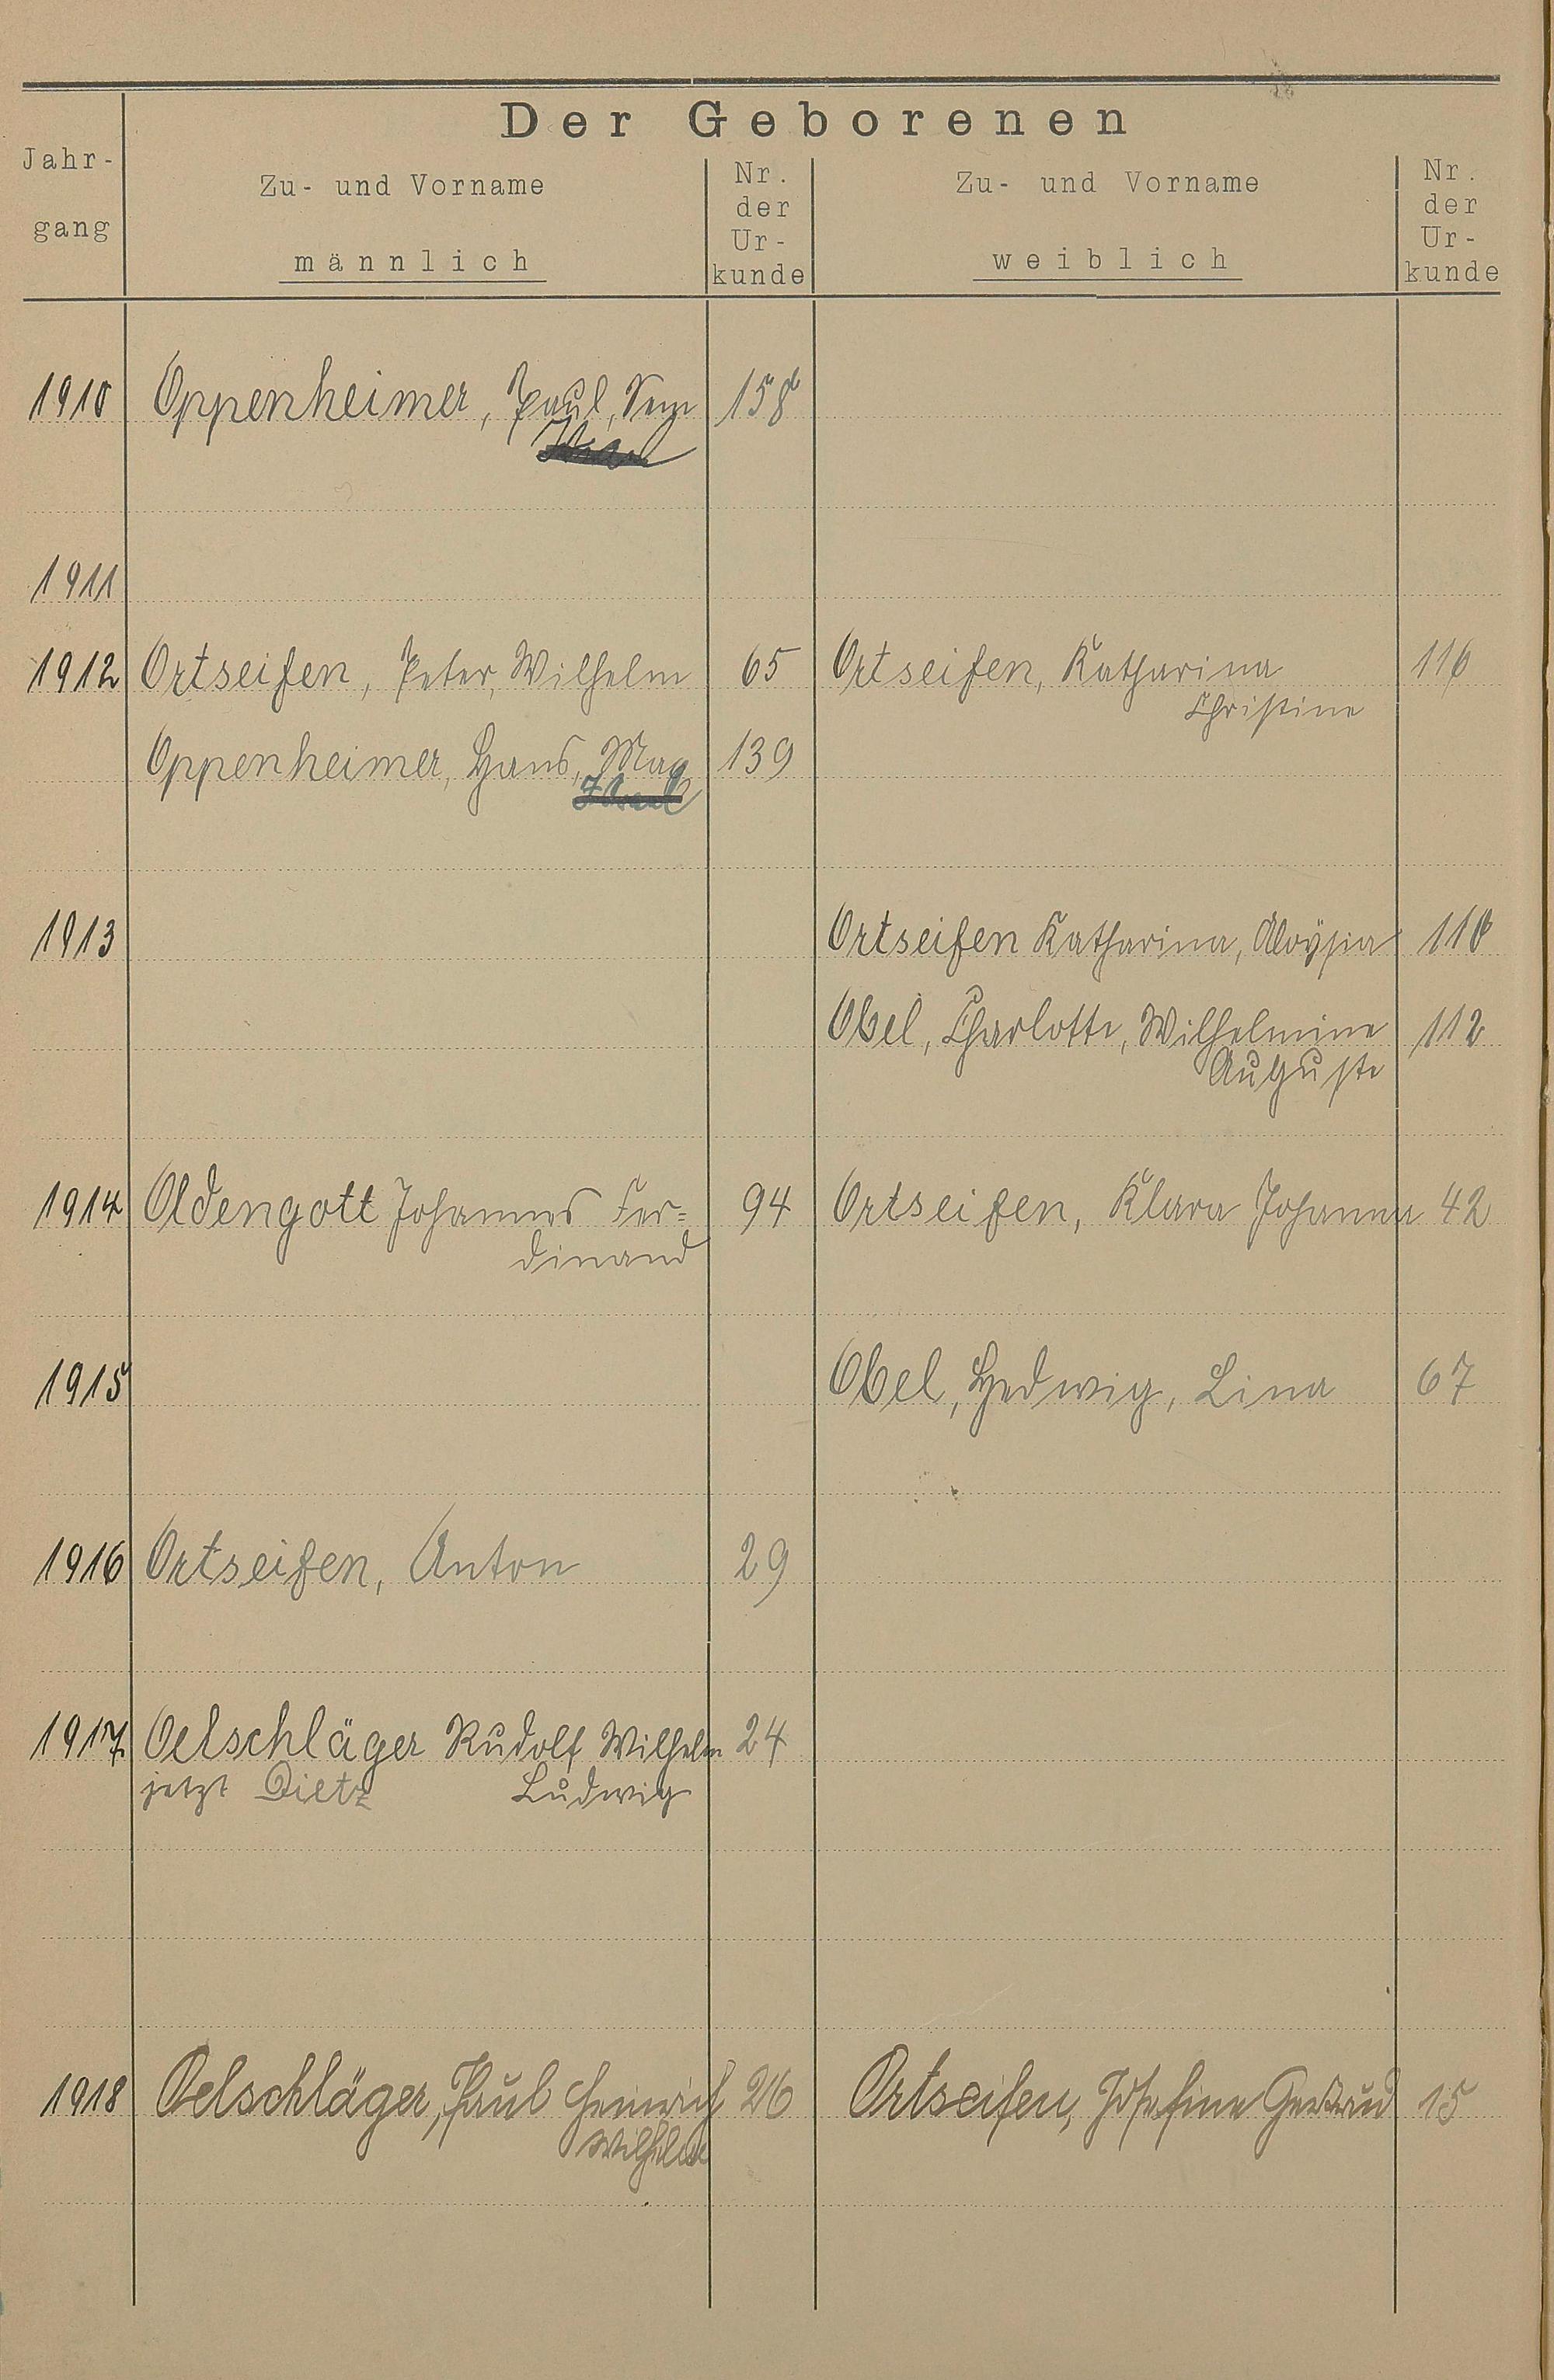 Der Geborenen
Jahr-
gang
Zu- und Vorname
männlich
Nr.
der
Ur-
kunde
Zu- und Vorname
weiblich
Nr.
der
Ur-
kunde
1910 Oppenheimer, Paul, 158
Israel
1911
1912 Ortseifen, Peter, Wilhelm 65 Ortseifen, Katharina 116
Christine
Oppenheimer, Hans, Max 139
Israel
1913 Ortseifen Katharina, Aloÿsia 110
Obel, Charlotte, Wilhelmine 112
Auguste
1914 Oldengott Johannes Fer= 94 Ortseifen, Klara Johanna 42
dinand
1915 Obel, Hedwig, Lina 67
1916 Ortseifen, Anton 29
1917 Oelschläger Rudolf Wilhelm 24
jetzt Dietz Ludwig
1918 Oelschläger, Paul Heinrich 26 Ortseifen, Josefine Gertrud 15
Wilhelm